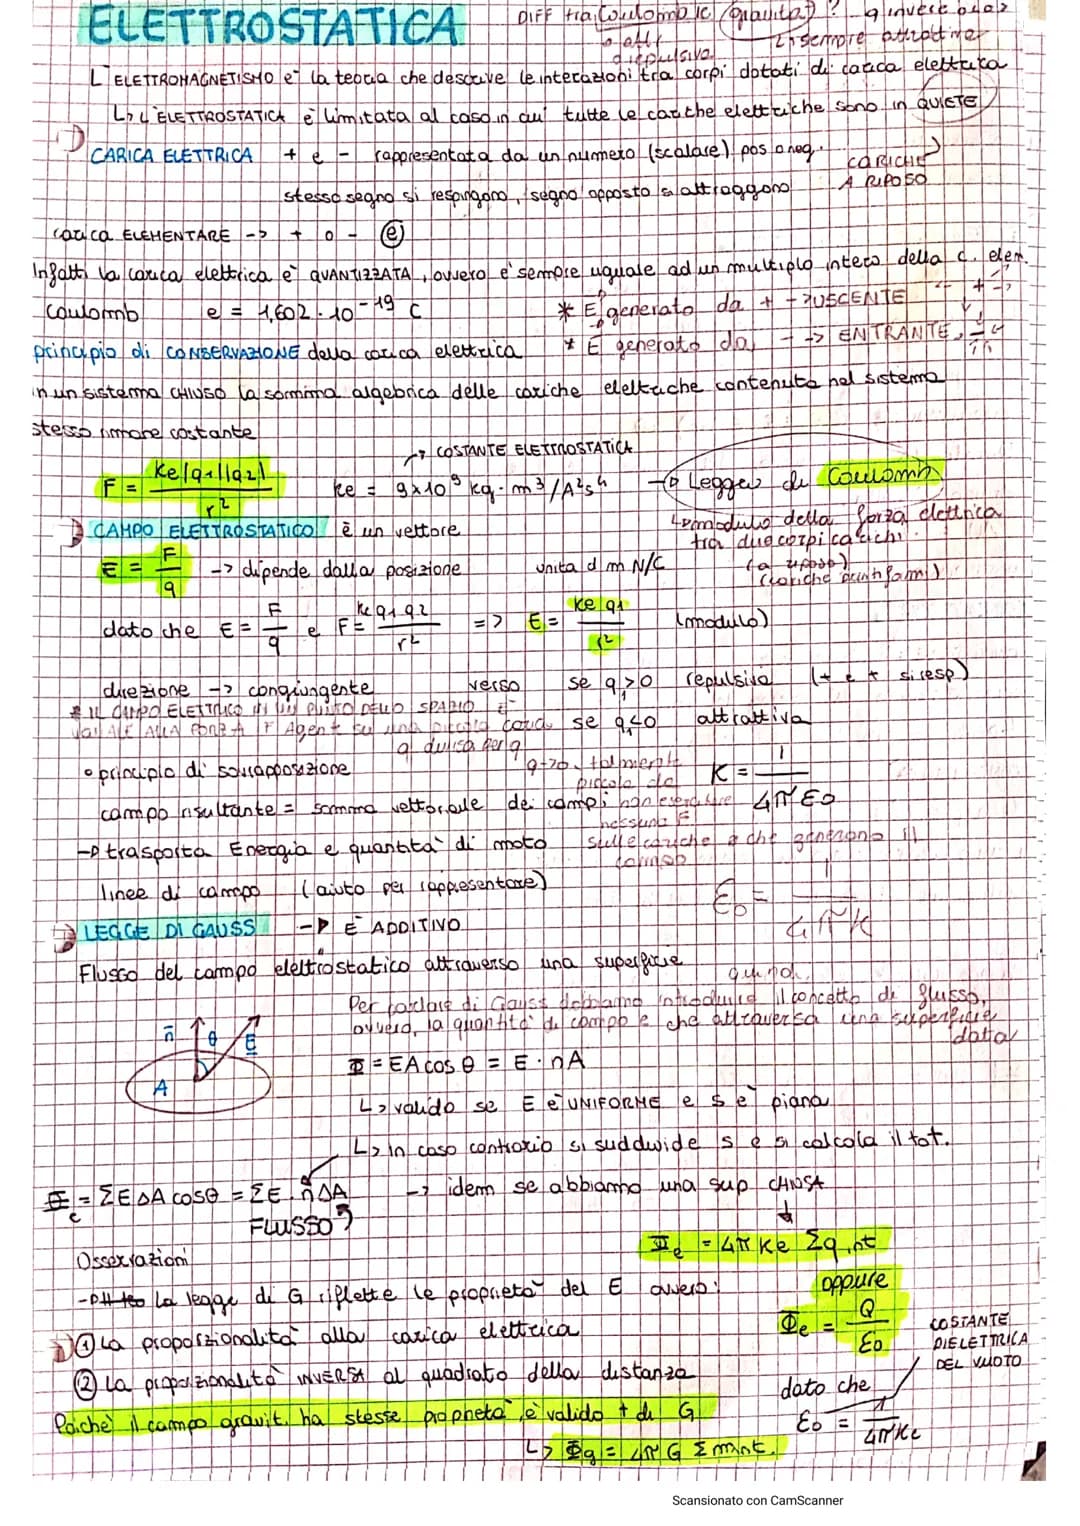 ELETTROSTATICA
DIFF tra Coulomb e (gravità) ?
sempre attrattiva
repulsiva
L'ELETTROMAGNETISMO e' la teoria che descrive le interazioni tra corpi dotati di carica elettrica
L> L'ELETTROSTATICA è limitata al caso in cui tutte le cariche elettriche sono in QUIETE
CARICHE
A RIPOSO
CARICA ELETTRICA + e - rappresentata da un numero (scalare) pos o neg.
stesso segno si respingono, segno opposto si attraggono
carica ELEMENTARE -> + o - e
Infatti la carica elettrica e' QUANTIZZATA, ovvero e' sempre uguale ad un multiplo intero della c. elem.
Coulomb e = 1,602 · 10^-19 C
* E generato da + -> USCENTE
* E generato da - -> ENTRANTE
principio di CONSERVAZIONE della carica elettrica
in un sistema CHIUSO la somma algebrica delle cariche elettriche contenute nel sistema
stesso rimane costante
-> COSTANTE ELETTROSTATICA
F = Ke|q1||q2| / r²
Ke = 9x10^9 kg·m³/A²s⁴
-> Legge di Coulomb
L> modulo della forza elettrica
tra due corpi carichi
(a riposo)
(cariche puntiformi)
CAMPO ELETTROSTATICO è un vettore
E = F / q -> dipende dalla posizione unità d m N/C
dato che E = F / q e F = Ke q1 q2 / r² => E = Ke q1 / r² (modulo)
direzione -> congiungente verso se q1>0 repulsiva (+ e + si resp)
se q1<0 attrattiva
* IL CAMPO ELETTRICO IN UN PUNTO DELLO SPAZIO E'
UGUALE ALLA FORZA F Agente su una piccola carica
q divisa per q
q->0 talmente
piccola da
non esercitare
nessuna F
sulle cariche che generano il
campo
• principio di sovrapposizione
K = 1 / 4πε0
campo risultante = somma vettoriale dei campi
-> trasporta Energia e quantità di moto
linee di campo (aiuto per rappresentare)
ε0 = 1 / 4πK
LEGGE DI GAUSS -> E' ADDITIVO
Flusso del campo elettrostatico attraverso una superficie
quindi
Per parlare di Gauss dobbiamo introdurre il concetto di flusso,
ovvero, la quantità di campo e che attraversa una superficie
data
n θ E
A
Φ = EA cos θ = E · nA
L> valido se E è UNIFORME e S e' piana
L> In caso contrario si suddivide S e si calcola il tot.
Φe = ΣEΔA cosθ = ΣE · nΔA -> idem se abbiamo una sup CHIUSA
FLUSSO
Φe = 4π Ke Σq int
Osservazioni
oppure
-> La legge di G riflette le proprietà del E ovvero:
Φe = Q / ε0
COSTANTE
DIELETTRICA
DEL VUOTO
① La proporzionalità alla carica elettrica
② La proporzionalità INVERSA al quadrato della distanza
dato che
ε0 = 1 / 4πKe
Poiché il campo gravit. ha stesse proprietà, è valido + di G
L> Φg = 4π G Σ m int.
Scansionato con CamScanner